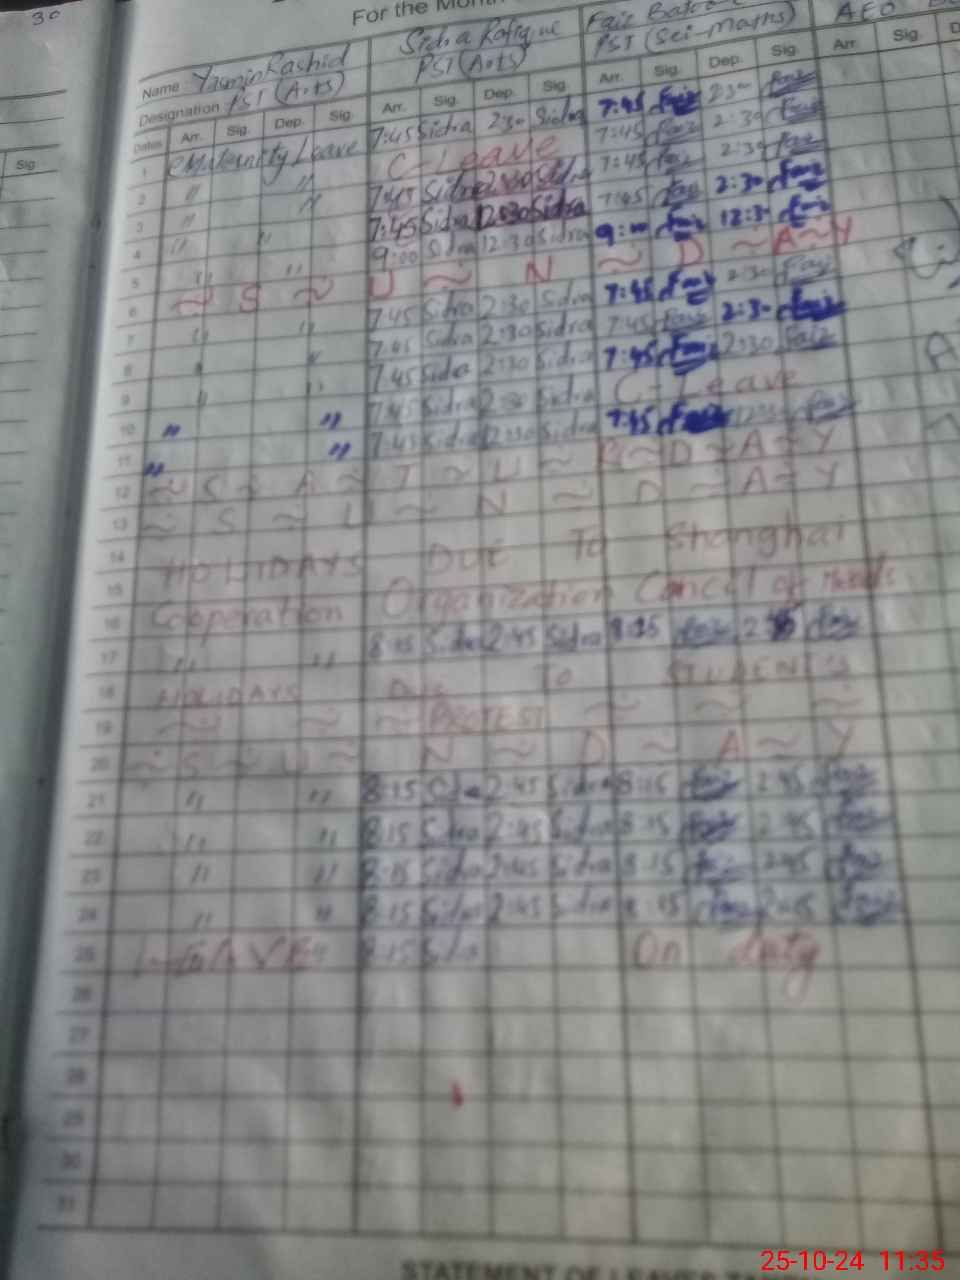 30
For the Month
Name Yasmin Rashid Sidra Rafique Faiz
Designation PST (Arts) PST (Arts) PST (Sci-Maths) AEO
Dates Arr. Sig. Dep. Sig. Arr. Sig. Dep. Sig. Arr. Sig. Dep. Sig. Arr. Sig. D
Sig
1 Maternity Leave 7:45 Sidra 2:30 Sidra 7:45 Faiz 2:30 Faiz
2 " " C-Leave 7:45 Faiz 2:30 Faiz
3 " " 7:45 Sidra Sidra 7:45 Faiz 2:30 Faiz
4 " " 7:45 Sidra 2:30 Sidra 7:45 Faiz 2:30 Faiz
5 " " 9:00 Sidra 12:30 Sidra 9:00 Faiz 12:30 Faiz
6 ~ S ~ U ~ N ~ D ~ A ~ Y
7 " " 7:45 Sidra 2:30 Sidra 7:45 Faiz 2:30 Faiz
8 " " 7:45 Sidra 2:30 Sidra 7:45 Faiz 2:30 Faiz
9 " " 7:45 Sidra 2:30 Sidra 7:45 Faiz 2:30 Faiz
10 " " 7:45 Sidra 2:30 Sidra C-Leave
11 " " 7:45 Sidra 12:30 Sidra 7:45 Faiz 12:30 Faiz
12 ~ S ~ A ~ T ~ U ~ R ~ D ~ A ~ Y
13 ~ S ~ U ~ N ~ D ~ A ~ Y
14 HOLIDAYS Due To Shanghai
15 Cooperation Organization Council of Heads
16
17 " " 8:15 Sidra 2:45 Sidra 8:15 Faiz 2:45 Faiz
18 HOLIDAYS Due To STUDENT'S
19 ~ ~ ~ PROTEST ~ ~ ~
20 ~ S ~ U ~ N ~ D ~ A ~ Y
21 " " 8:15 Sidra 2:45 Sidra 8:15 Faiz 2:45 Faiz
22 " " 8:15 Sidra 2:45 Sidra 8:15 Faiz 2:45 Faiz
23 " " 8:15 Sidra 2:45 Sidra 8:15 Faiz 2:45 Faiz
24 " " 8:15 Sidra 2:45 Sidra 8:15 Faiz 2:45 Faiz
25 " 8:15 Sidra On duty
26
27
28
29
30
31
STATEMENT OF LEAVES
25-10-24 11:35